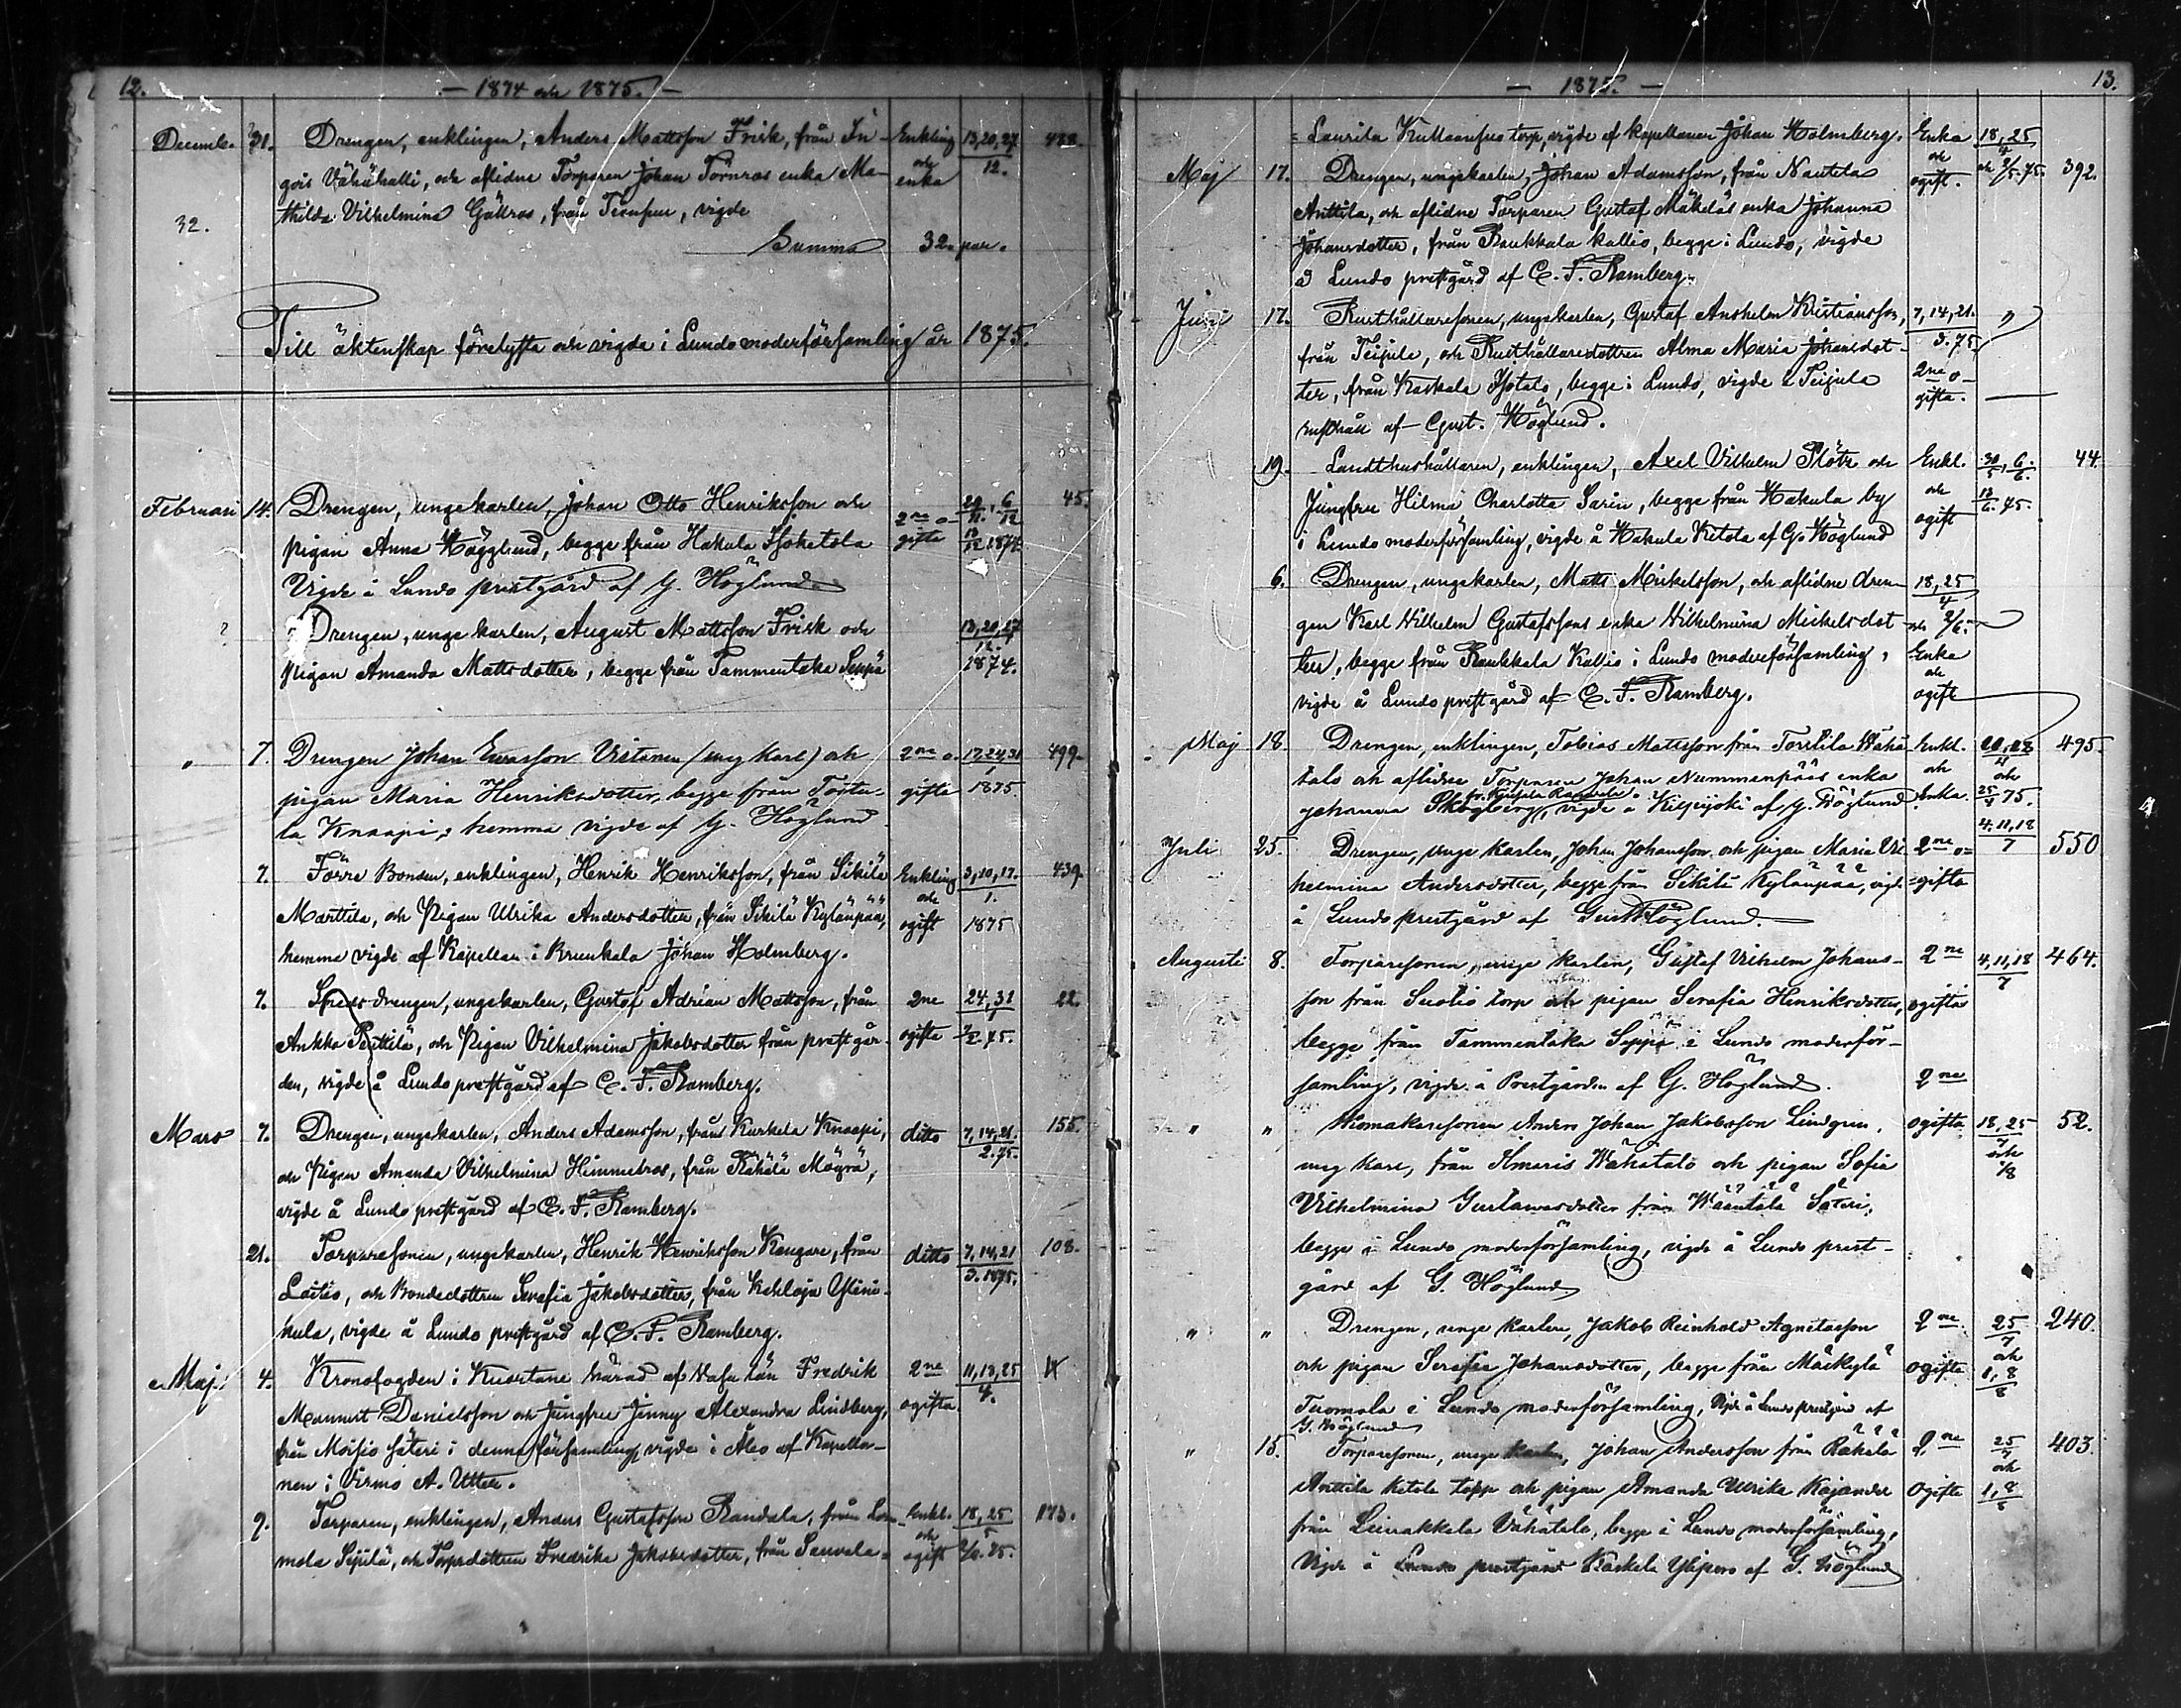 12. — 1874 och 1875. —
Decemb. 31. Drengen, enklingen, Anders Mattsson Frisk, från In- Enkling 13,20,27 488.
gois Vähähalli, och aflidne Torparen Johan Törnros enka Ma- och enka 12.
32. thilda Vilhelmina Gällros, från, vigde
Summa 32 par.
Till äktenskap förelysta och vigda i Lundo moderförsamling år 1875.
Februari 14. Drengen, ungekarlen, Johan Otto Henriksson och 2ne o- 29/11, 6/12 45.
pigan Anna Hägglund, begge från Hakula Isoketola gifta 13/12 1874
Vigde å Lundo prestgård af G. Höglund
? Drengen, unge karlen, August Mattsson Frisk och 13,20,27
12.
pigan Amanda Mattsdotter, begge från Tammentaka Seppä 1874.
" 7. Drengen Johan Evasson Virtanen (ung karl) och 2ne o- 17,24,31 499.
1
pigan Maria Henriksdotter, begge från Torta- gifta 1875
la Knaapi, hemma vigde af G. Höglund
7. Förre Bonden, enklingen, Henrik Henriksson, från Sikilä Enkling 3,10,17. 439.
Marttila, och Pigan Ulrika Andersdotter, från Sikilä Kylänpää, och ogift 1. 1875
hemma vigde af Kapellan i Brunkala Johan Holmberg.
7. drengen, ungekarlen, Gustaf Adrian Mattsson, från 2ne 24,31 22.
Ankka Penttilä, och Pigan Vilhelmina Jakobsdotter från prestgår- ogifta 7/2 75.
den, vigde å Lundo prestgård af C. F. Ramberg.
Mars 7. Drengen, ungekarlen, Anders Adamsson, från Kurkela Knaapi, ditto 7,14,21. 155.
2. 75.
och Pigan Amanda Vilhelmina Himmelros, från Räkälä Mäyrä,
vigde å Lundo prestgård af C. F. Ramberg.
21. Torparesonen, ungekarlen, Henrik Henriksson Kangare, från ditto 7,14,21 108.
3. 1875.
Laitio, och Bondedottren Serafia Jakobsdotter, från
kula, vigde å Lundo prestgård af C. F. Ramberg.
Maj 4. Kronofogden i Kuortane härad af Vasa län Fredrik 2ne 11,18,25
Mannert Danielsson och Jungfru Jinny Alexandra Lindberg, ogifta. 4.
från Moisio säteri i denna församling, vigde i Åbo af Kapella-
nen i Virmo A. Utter.
9. Torparen, enklingen, Anders Gustafsson Randala, från Lem- Enkl. 18,25 173.
mola Sipilä, och Torpdottren Fredrika Jakobsdotter, från Sauvala- och ogift
— 1875. — 13.
= Laurila torp, vigde af kapellanen Johan Holmberg. Enka 18,25
4
Maj 17. Drengen, ungekarlen, Johan Adamsson, från Nautela och ogift. och 2/5. 75. 392.
Anttila, och aflidne Torparen Gustaf Mäkeläs enka Johanna
Johansdotter, från Raukkala Kallio, begge i Lundo, vigde
å Lundo prestgård af C. F. Ramberg.
Juni 17. Rusthållaresonen, ungekarlen, Gustaf Anshelm Kristiansson, 7,14,21. "
från Teijula, och Rusthållaredottren Alma Maria Johansdot- 3. 75.
ter, från Kaskala Isotalo, begge i Lundo, vigde å Teijula 2ne o-
rusthåll af Gust. Höglund. gifta.
19. Landthushållaren, enklingen, Axel Vilhelm Plötz och Enkl. 30/5, 6/6. 44.
Jungfru Hilma Charlotta Sarin, begge från Hakula by och 13/6. 75.
i Lundo moderförsamling, vigde å Hakula Ketola af G. Höglund ogift
6. Drengen, ungekarlen, Matts Mickelsson, och aflidne dren- 18,25
4
gen Karl Vilhelm Gustafssons enka Vilhelmina Mickelsdot- och
ter, begge från Raukkala Kallio i Lundo moderförsamling, Enka
och
vigde å Lundo prestgård af C. F. Ramberg. ogift
Maj 18 Drengen, enklingen, Tobias Mattsson från Torttila Wähä- Enkl. 495.
talo och aflidne Torparen Johan Nummenpääs enka och och
Johanna Skogberg, vigde å Kilpijoki af G. Höglund Enka. 25/4 75.
Juli 25. Drengen, unge karlen, Johan Johansson och pigan Maria Vil- 2ne o- 4. 11, 18 550
7
helmina Andersdotter, begge från Sikilä Kylänpää, vigde =gifta
å Lundo prestgård af Gust Höglund.
Augusti 8. Torparesonen, unge karlen, Gustaf Vilhelm Johans- 2ne 4,11,18 464.
7
son från Suotio torp och pigan Serafia Henriksdotter, ogifta
begge från Tammentaka Seppä i Lundo moderför-
samling, vigde å Prestgården af G. Höglund. 2ne
" " Anders Johan Jakobsson Lindgren, ogifta 18,25 52.
7
ung karl, från Ilmaris Wähätalo och pigan Sofia och 1/8
Vilhelmina Gustavsdotter från Wääntälä Säteri,
begge i Lundo moderförsamling, vigde å Lundo prest-
gård af G. Höglund
" " Drengen, unge karlen, Jakob Reinhold Agnetasson 2ne 25 240.
7
och pigan Serafia Johansdotter, begge från Mäkkylä ogifta och 1, 8
8
Tuomola i Lundo moderförsamling, Vigde å Lundo prestgård af
G. Höglund
" 15. Torparesonen, unge karlen, Johan Andersson från Räkälä 2ne 25 403.
7
och
Anttila Ketola torp och pigan Amanda Ulrika Kajander ogifta 1, 8
8
från Liinakkala Vähätalo, begge i Lundo moderförsamling,
Vigde å Lundo prestgård Kaskela Ylipero af G. Höglund